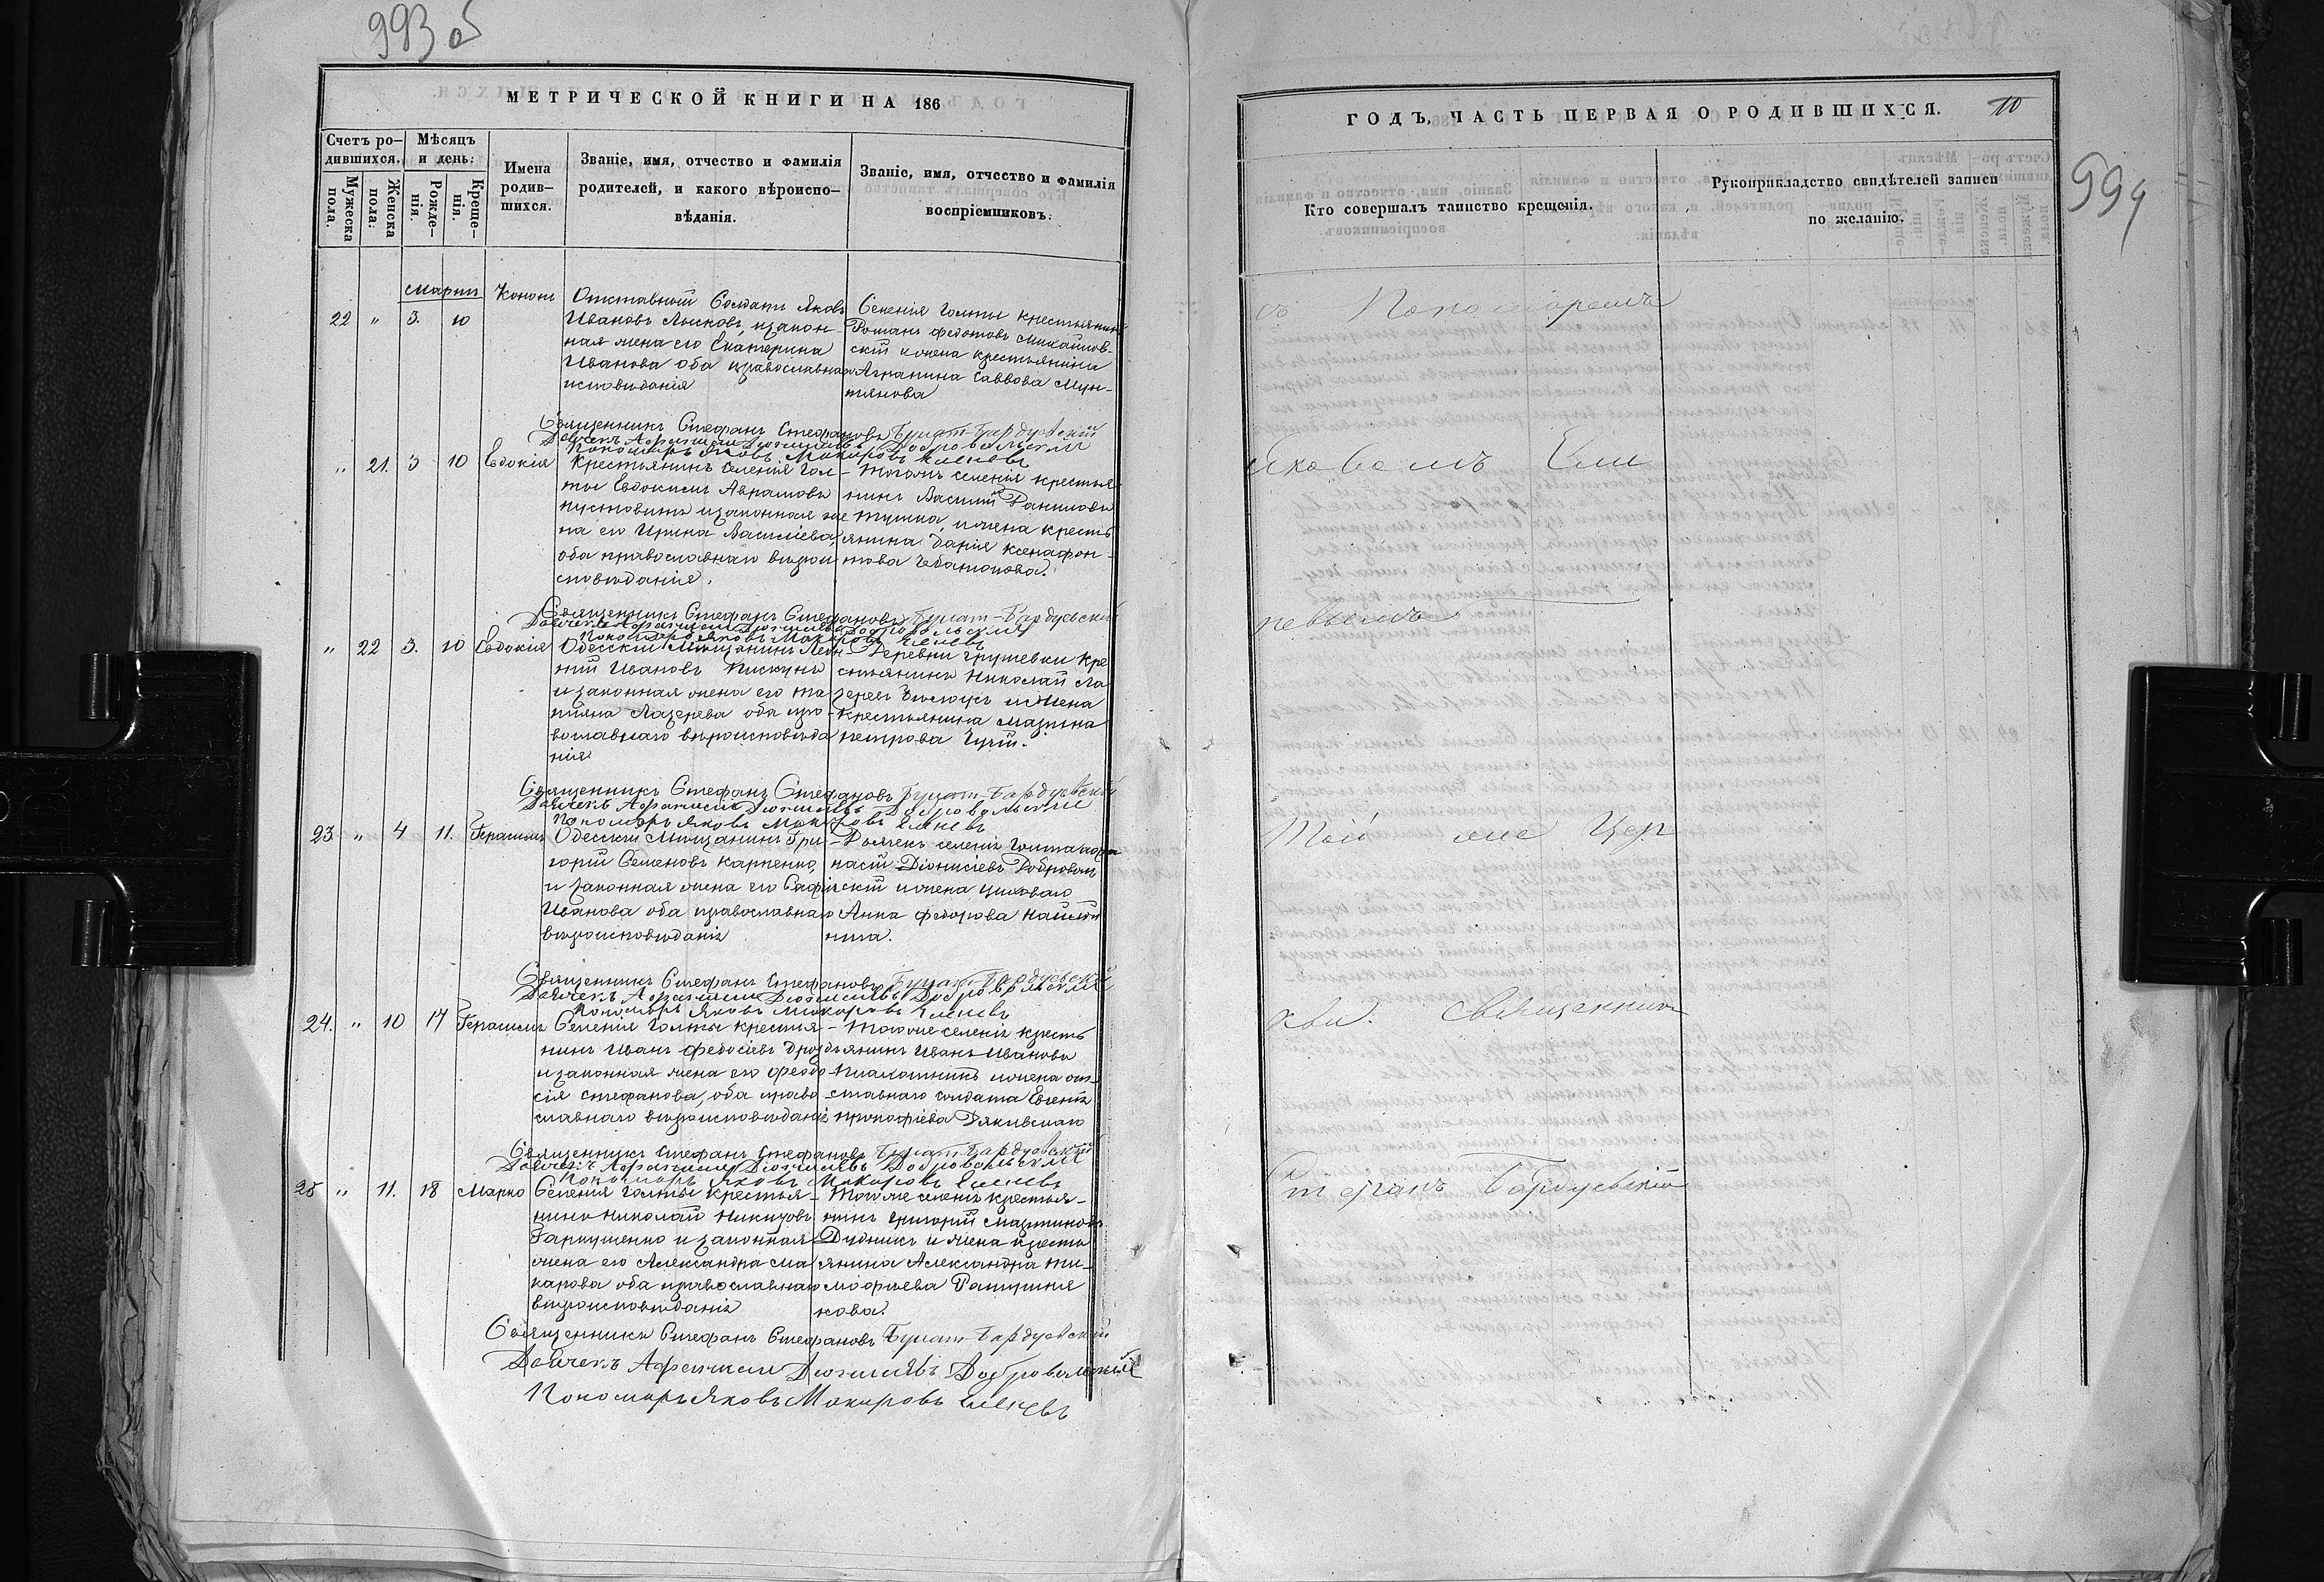 993 об
МЕТРИЧЕСКОЙ КНИГИ НА 186
Счетъ ро-
дившихся.
Мѣсяцъ
и день:
Мужеска
пола.
Женска
пола:
Рожде-
нія.
Креще-
нія.
Имена
родив-
шихся.
Званіе, имя, отчество и фамилія
родителей, и какого вѣроиспо-
вѣданія.
Званіе, имя, отчество и фамилія
воспріемниковъ.
Мартъ
22 " 3. 10
Кононъ
Отставной Солдатъ Яковъ
Ивановъ, изакон-
ная жена его Екатерина
Иванова оба православнаго
исповѣданія
Селенія Голты крестьянинъ
Романъ Федотовъ Михайлов-
скій и жена крестьянина
Агрипина Саввова Мун-
тянова
Священникъ Стефанъ Стефановъ Булат-Бардуевскій
Дьячекъ Афанасій Діонисіевъ Добровольскій
Пономарь Яковъ Макаровъ
" 21. 3 10
Евдокія
Крестьянинъ Селенія Гол-
ты Евдокимъ Аврамовъ
Пустовитъ изаконная же
на его Ирина Василіева,
оба православнаго вѣрои
сповѣданія.
Тогожъ селенія крестья-
нинъ Василій Даниловъ
и жена кресть
янина Дарія Ксенафон-
това
Священникъ Стефанъ Стефановъ Булат-Бардуевскій
Дьячекъ Афанасій Діонисіевъ Добровольскій
Пономарь Яковъ Макаровъ
" 22 3. 10
Евдокія
Одесскій Мѣщанинъ
Ивановъ Пискунъ
и законная жена его Та
тіяна Лазерева оба пра-
вославнаго вѣроисповѣда
нія
Деревни Грушевки Кре
стьянинъ Николай Ла
зерев и жена
крестьянина Марина
Петрова
Священникъ Стефанъ Стефановъ Булат-Бардуевскій
Дьячекъ Афанасій Діонисіевъ Добровольскій
Пономарь Яковъ Макаровъ
23 " 4 11.
Герасимъ
Одесскій Мѣщанинъ Гри-
горій Семеновъ Карпенко,
и законная жена его Софія
Иванова оба православнаго
вѣроисповѣданія
Дьячек селенія Голта Афа
насій Діонисіевъ Доброволь
скій и жена
Анна Федорова
Священникъ Стефанъ Стефановъ Булат-Бардуевскій
Дьячекъ Афанасій Діонисіевъ Добровольскій
Пономарь Яковъ Макаровъ
24. " 10 17
Герасимъ
Селенія Голты крестья-
нинъ Иванъ Федосіевъ Дрозд
и законная жена его Феодо-
сія Стефанова, оба право-
славнаго вѣроисповѣданія
Тогоже селенія кресть
янинъ Иванъ Ивановъ
и жена от-
ставнаго солдата Евгенія
Прокофіева
Священникъ Стефанъ Стефановъ Булат-Бардуевскій
Дьячекъ Афанасій Діонисіевъ Добровольскій
Пономарь Яковъ Макаровъ
25 " 11. 18
Марко
Селенія Голты Крестья-
нинъ Николай Никитовъ
и законная
жена его Александра Ма
карова оба православнаго
вѣроисповѣданія
Тогоже селенія крестья-
нинъ Григорій Мартиновъ
Дудникъ и жена кресть
янина Александра Ти-
мофіева
кова.
Священникъ Стефанъ Стефановъ Булат-Бардуевскій
Дьячекъ Афанасій Діонисіевъ Добровольскій
Пономарь Яковъ Макаровъ
ГОДЪ, ЧАСТЬ ПЕРВАЯ О РОДИВШИХСЯ.
10
994
Кто совершалъ таинство крещенія.
Рукоприкладство свидѣтелей записи
по желанію.
съ Пономаремъ
Яковомъ Ели
невымъ
Той же Цер
кви. Священникъ
Стефанъ Бардуевскій